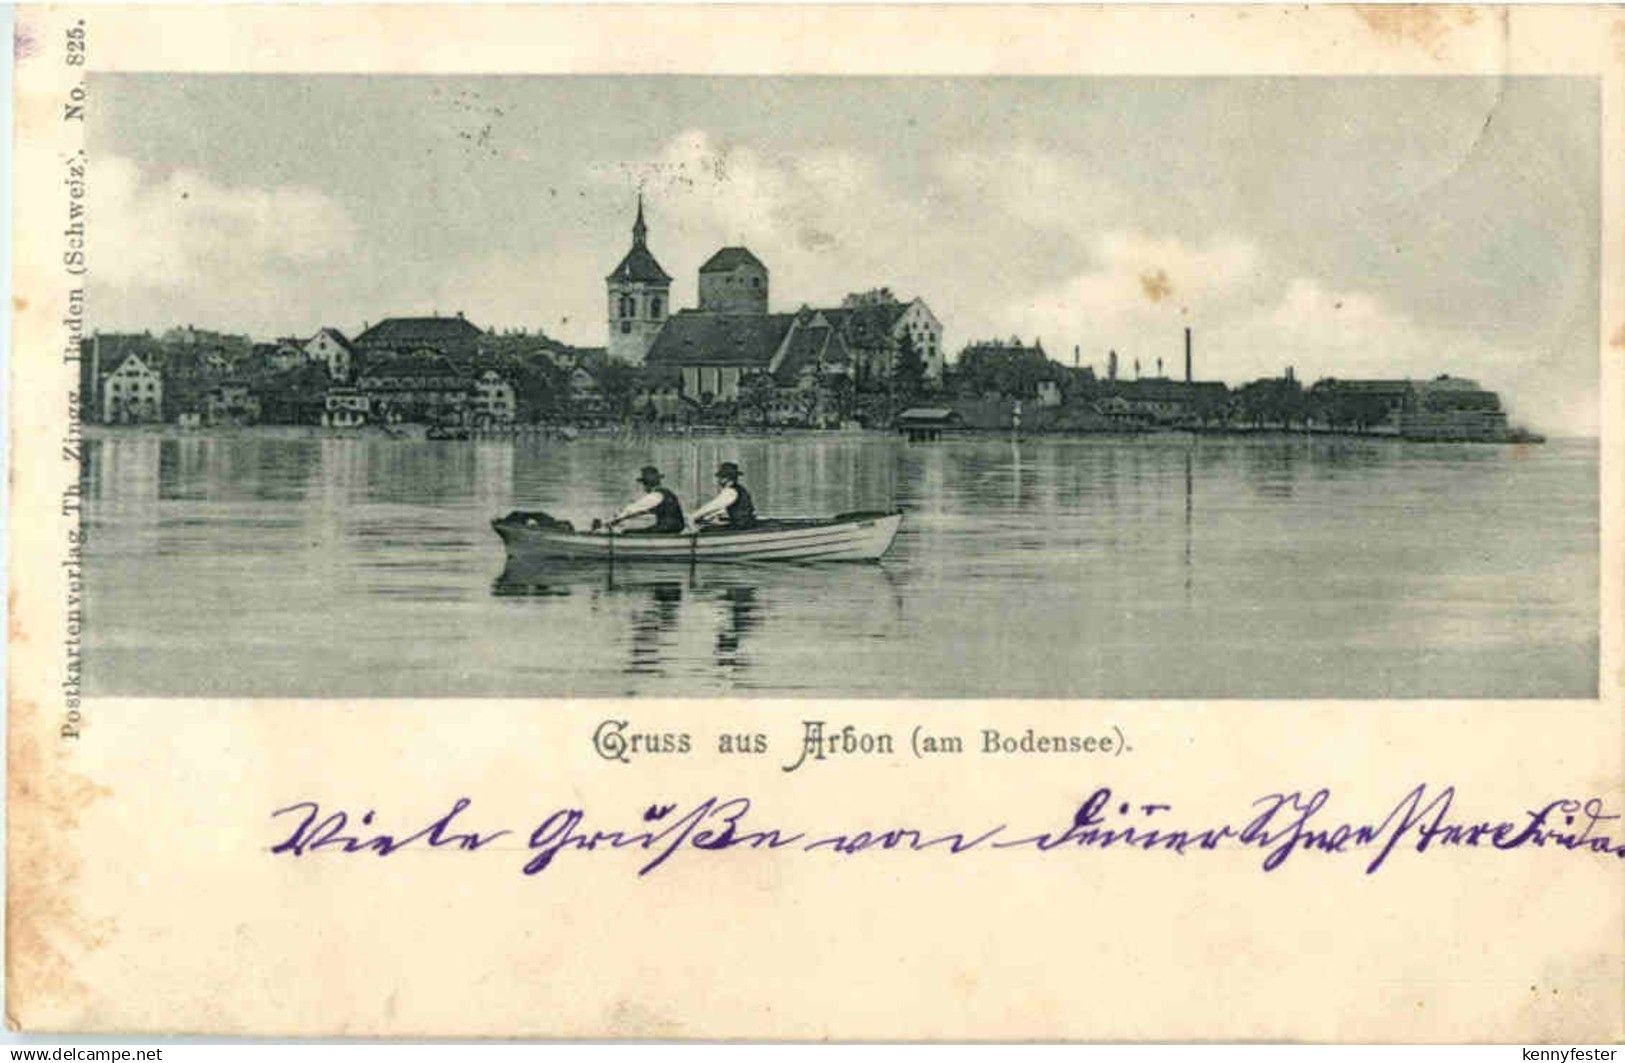 Postkartenverlag Th. Zingg, Baden (Schweiz). No. 825.
Gruss aus Arbon (am Bodensee).
Viele Grüße von deiner Schwester Frida.
www.delcampe.net
kennyfester